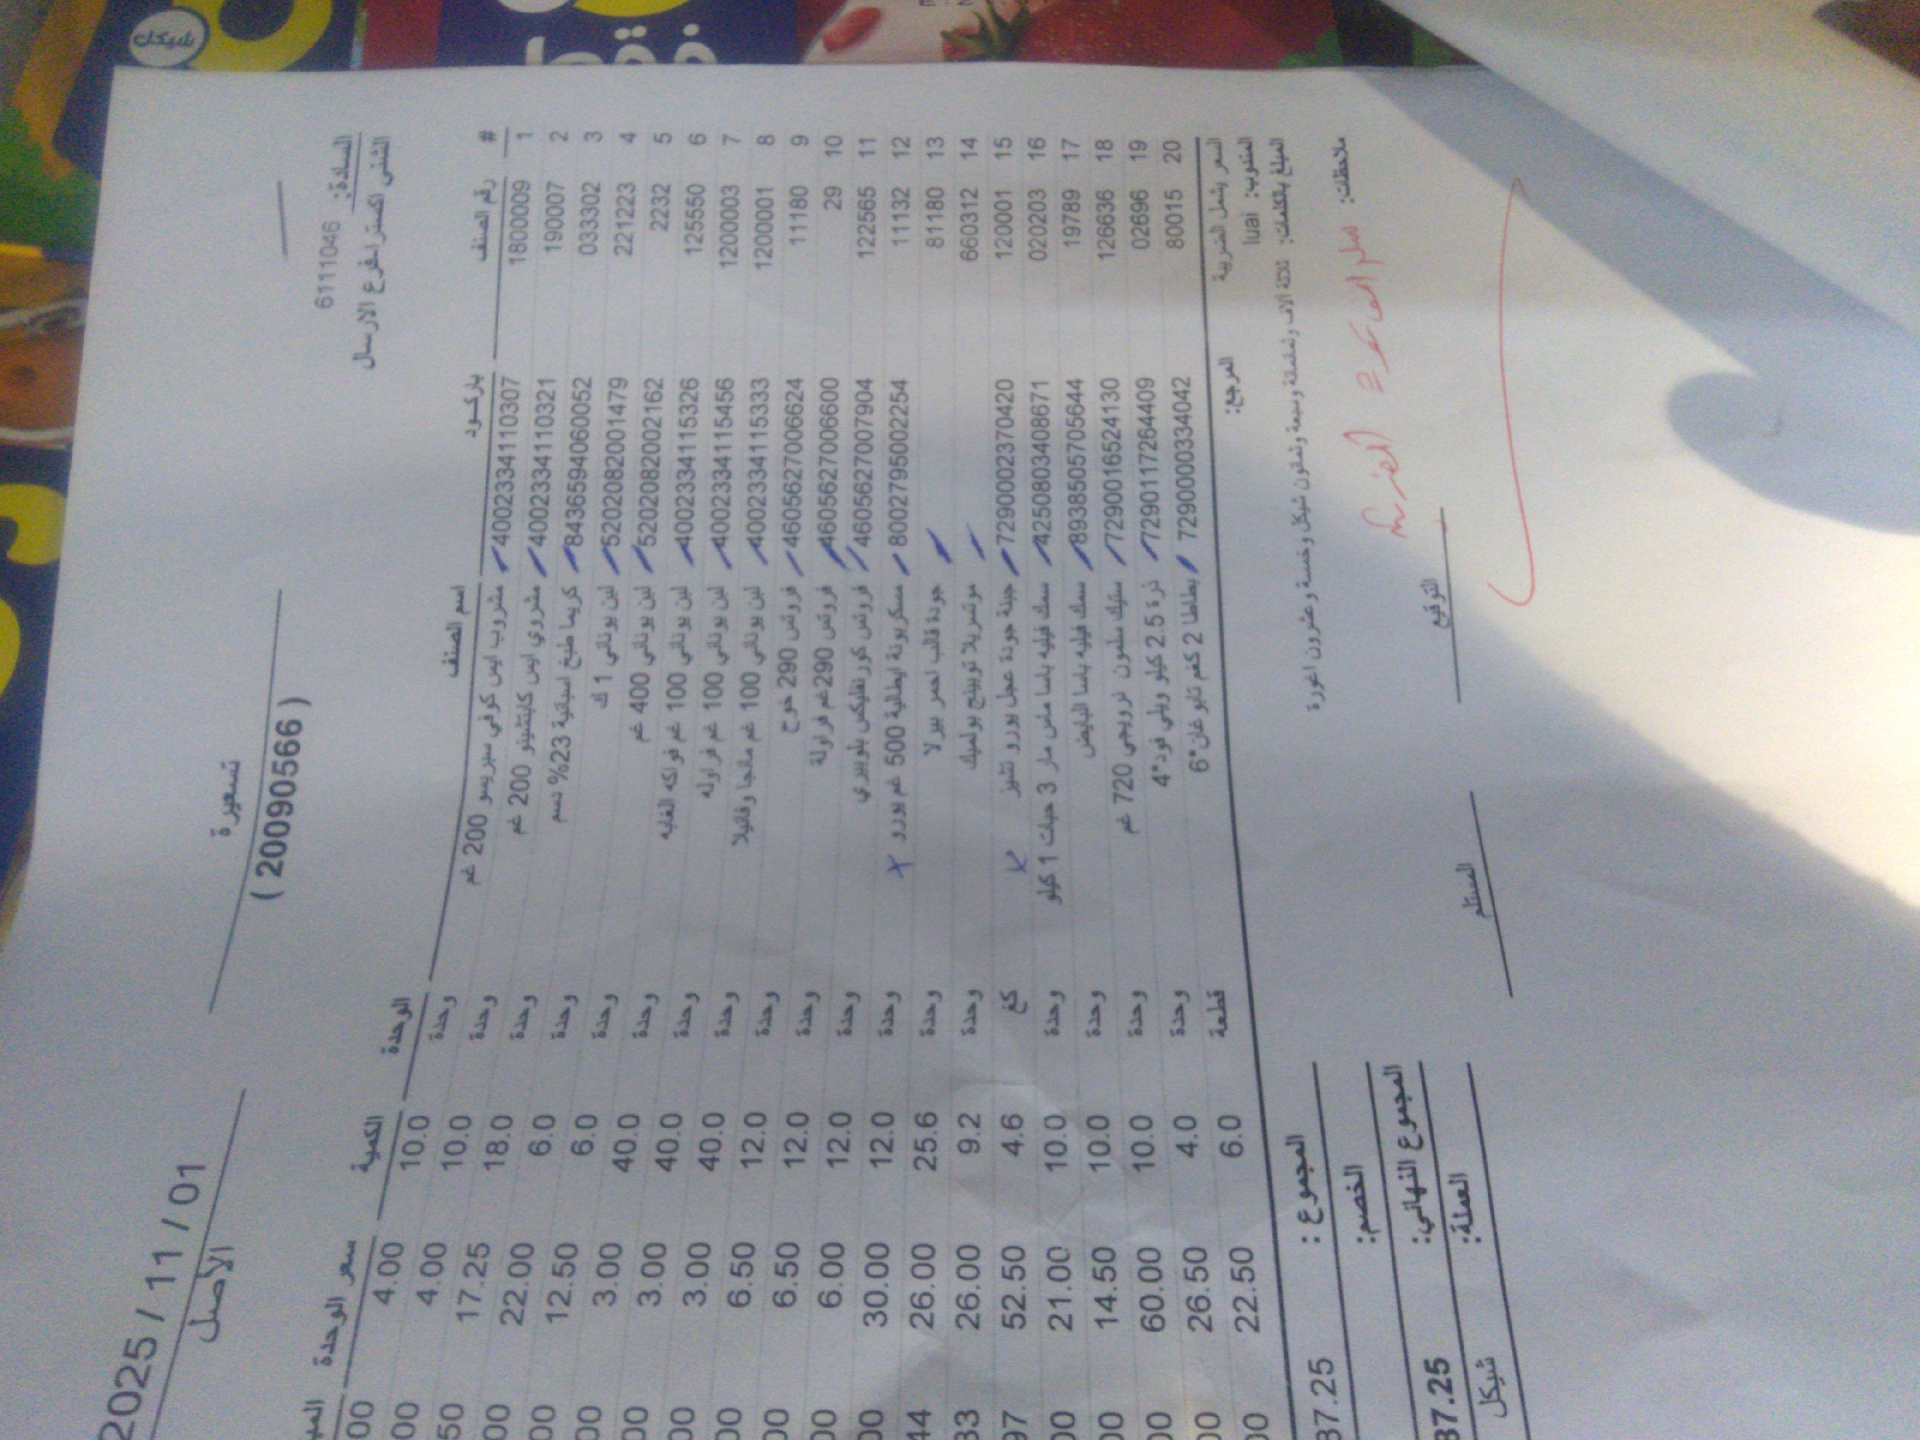 شيكل
2025 / 11 / 01
الأصل
تسعيرة
( 20090566 )
السادة: 6111046
# رقم الصنف باركود اسم الصنف الوحدة الكمية سعر الوحدة
1 1800009 4002334110307 مشروب ايس كوفي سبريسو 200 غم وحدة 10.0 4.00 00
2 190007 4002334110321 مشروي ايس كابتشينو 200 غم وحدة 10.0 4.00 00
3 033302 8436594060052 كريما طبخ اسبانية 23% دسم وحدة 18.0 17.25 50
4 221223 5202082001479 لبن يوناني 1 ك وحدة 6.0 22.00 00
5 2232 5202082002162 لبن يوناني 400 غم وحدة 6.0 12.50 00
6 125550 4002334115326 لبن يوناني 100 غم فواكه الغابه وحدة 40.0 3.00 00
7 1200003 4002334115456 لبن يوناني 100 غم فراوله وحدة 40.0 3.00 00
8 1200001 4002334115333 لبن يوناني 100 غم مانجا وفانيلا وحدة 40.0 3.00 00
9 11180 4605627006624 فروتس 290 خوخ وحدة 12.0 6.50 00
10 29 4605627006600 فروتس 290غم فراولة وحدة 12.0 6.50 00
11 122565 4605627007904 فروتس كورنفليكس بلوبيري وحدة 12.0 6.00 00
12 11132 8002795002254 مسكربونة ايطالية 500 غم يورو وحدة 12.0 30.00 00
13 81180 جودة قالب احمر بيرلا وحدة 25.6 26.00 44
14 660312 موتسريلا توبينج بولميك وحدة 9.2 26.00 33
15 120001 7290002370420 جبنة جودة عجل يورو تشيز كغ 4.6 52.50 97
16 020203 4250803408671 سمك فيليه باسا ماس مار 3 حبات 1 كيلو وحدة 10.0 21.00 00
17 19789 8938505705644 سمك فيليه باسا البايض وحدة 10.0 14.50 00
18 126636 7729001652​4130 ستيك سلمون نرويجي 720 غم وحدة 10.0 60.00 00
19 02696 7290117264409 ذرة 2.5 كيلو ويلي فود*4 وحدة 4.0 26.50 00
20 80015 7290000334042 بطاطا 2 كغم تابوغان*6 قطعة 6.0 22.50 00
السعر يشمل الضريبة
المندوب: luai المرجع:
المبلغ بالكلمات: ثلاثة الاف وثلثمائة وسبعة وثمانون شيكل وخمسة وعشرون اغورة
المجموع : 37.25
الخصم:
المجموع النهائي: 37.25
العملة: شيكل
ملاحظات:
التوقيع
المستلم